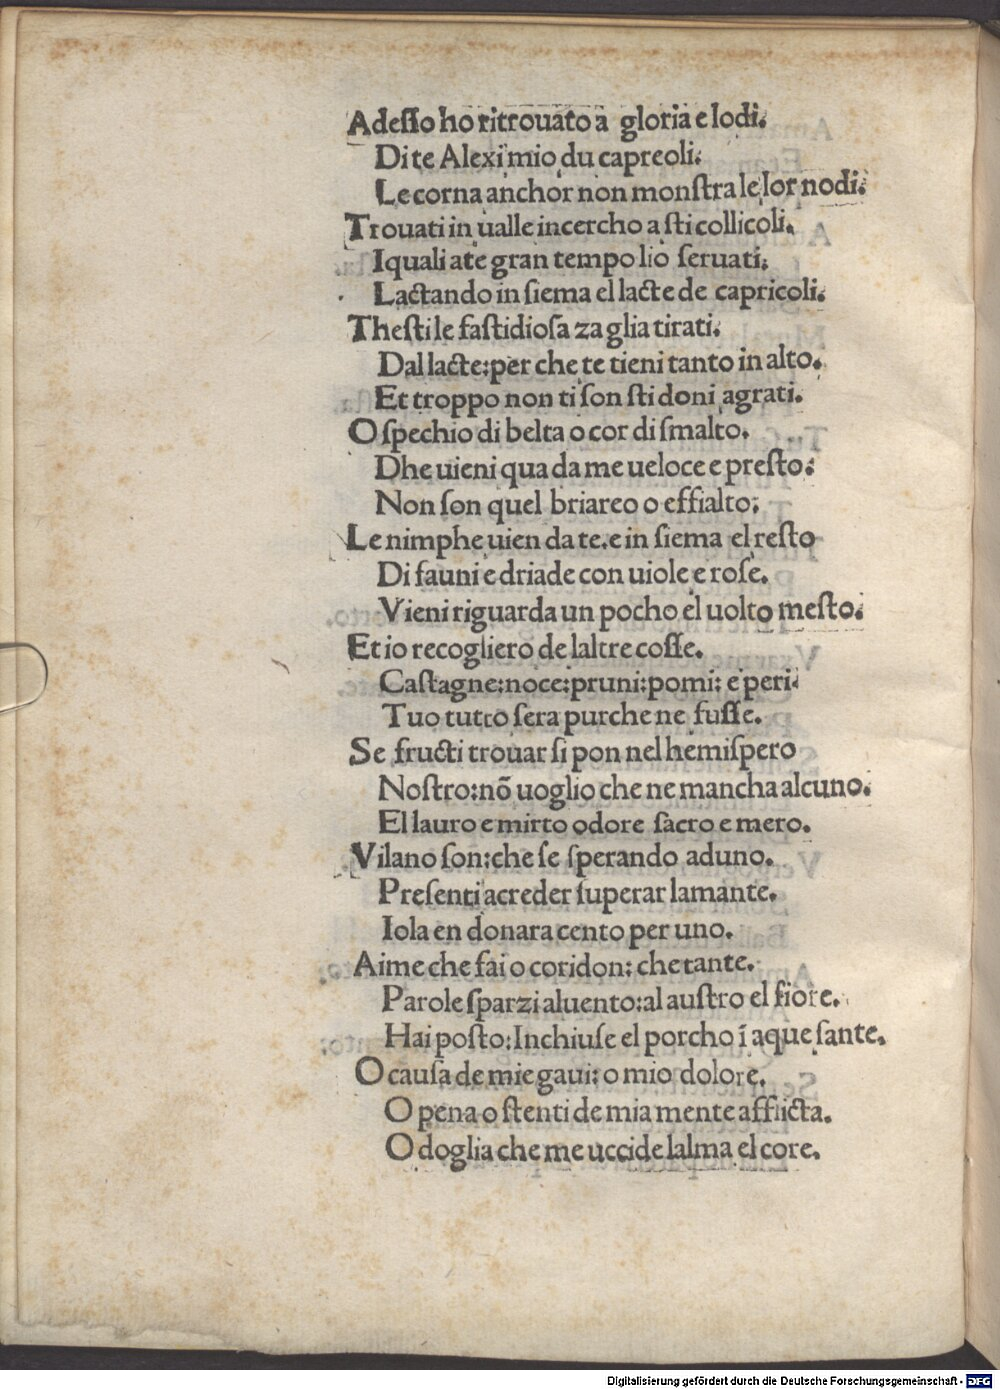 Adeſſo ho ritrouato a gloria e lodi.
Di te Alexi mio du capreoli:
Le corna anchor non monſtra le lor nodi.
Trouati in ualle incercho a ſti collicoli.
Iquali ate gran tempo lio ſeruati:
Lactando in ſiema el lacte de capricoli.
Theſtile faſtidioſa za glia tirati.
Dal lacte:per che te tieni tanto in alto.
Et troppo non ti ſon ſti doni agrati.
O ſpechio di belta o cor di ſmalto.
Dhe uieni qua da me ueloce e preſto:
Non ſon quel briareo o effialto:
Le nimphe uien da te.e in ſiema el reſto
Di fauni e driade con uiole e roſe.
Vieni riguarda un pocho el uolto meſto.
Et io recogliero de laltre coſſe.
Caſtagne:noce:pruni:pomi: e peri
Tuo tutto ſera purche ne fuſſe.
Se fructi trouar ſi pon nel hemiſpero
Noſtro:nõ uoglio che ne mancha alcuno.
El lauro e mirto odore ſacro e mero.
Vilano ſon:che ſe ſperando aduno.
Preſenti acreder ſuperar lamante.
Iola en donara cento per uno.
Aime che fai o coridon: che tante.
Parole ſparzi al uento:al auſtro el fiore.
Hai poſto:Inchiuſe el porcho ĩ aque ſante.
O cauſa de mie gaui: o mio dolore.
O pena o ſtenti de mia mente afflicta.
O doglia che me uccide lalma el core.
Digitalisierung gefördert durch die Deutsche Forschungsgemeinschaft - DFG